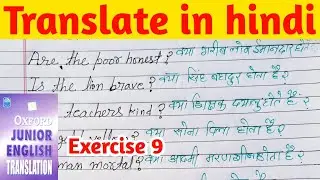 Translate in hindi
Are the poor honest? क्या गरीब लोग ईमानदार होते
Is the lion brave? क्या सिंह बहादुर होता है?
teachers kind? क्या शिक्षक दयालु होते हैं?
क्या सोना पीला होता है?
man mortal? क्या आदमी मरणशील होता है?
OXFORD
JUNIOR
ENGLISH
TRANSLATION
Exercise 9